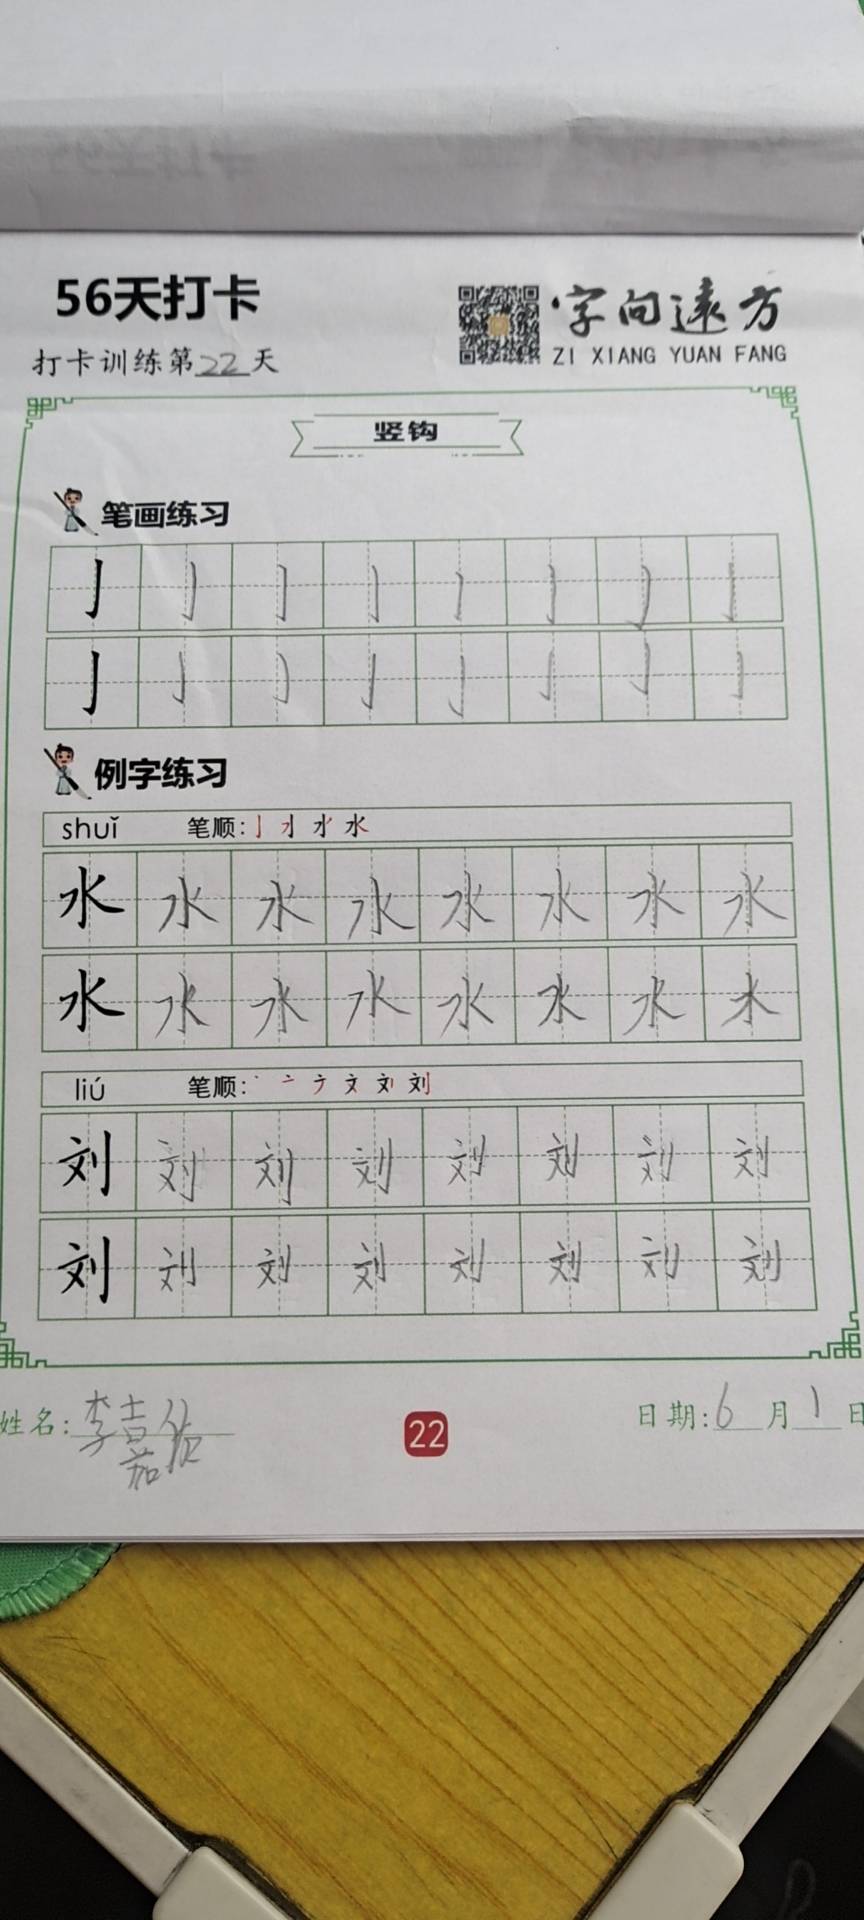 56天打卡
字向远方
ZI XIANG YUAN FANG
打卡训练第22天
竖钩
笔画练习
亅亅亅亅亅亅亅亅
亅亅亅亅亅亅亅亅
例字练习
shuǐ 笔顺:
水水水水水水水水
水水水水水水水水
liú 笔顺:
刘刘刘刘刘刘刘刘
刘刘刘刘刘刘刘刘
姓名:李
22
日期:6月1日